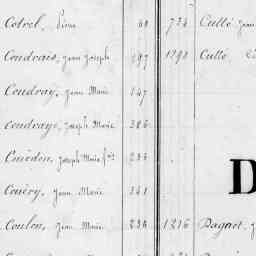 Cotrel, Pierre 60 724 Cullé Jean
Coudrais, Jean Joseph 197 1298 Cullé,
Coudray, Jean Marie 147
Coudraye, Joseph Marie 386
Joseph Marie 236
Couëry, Jean Marie 341
Coulon, Jean Marie 236 1216 Dagart, J
D